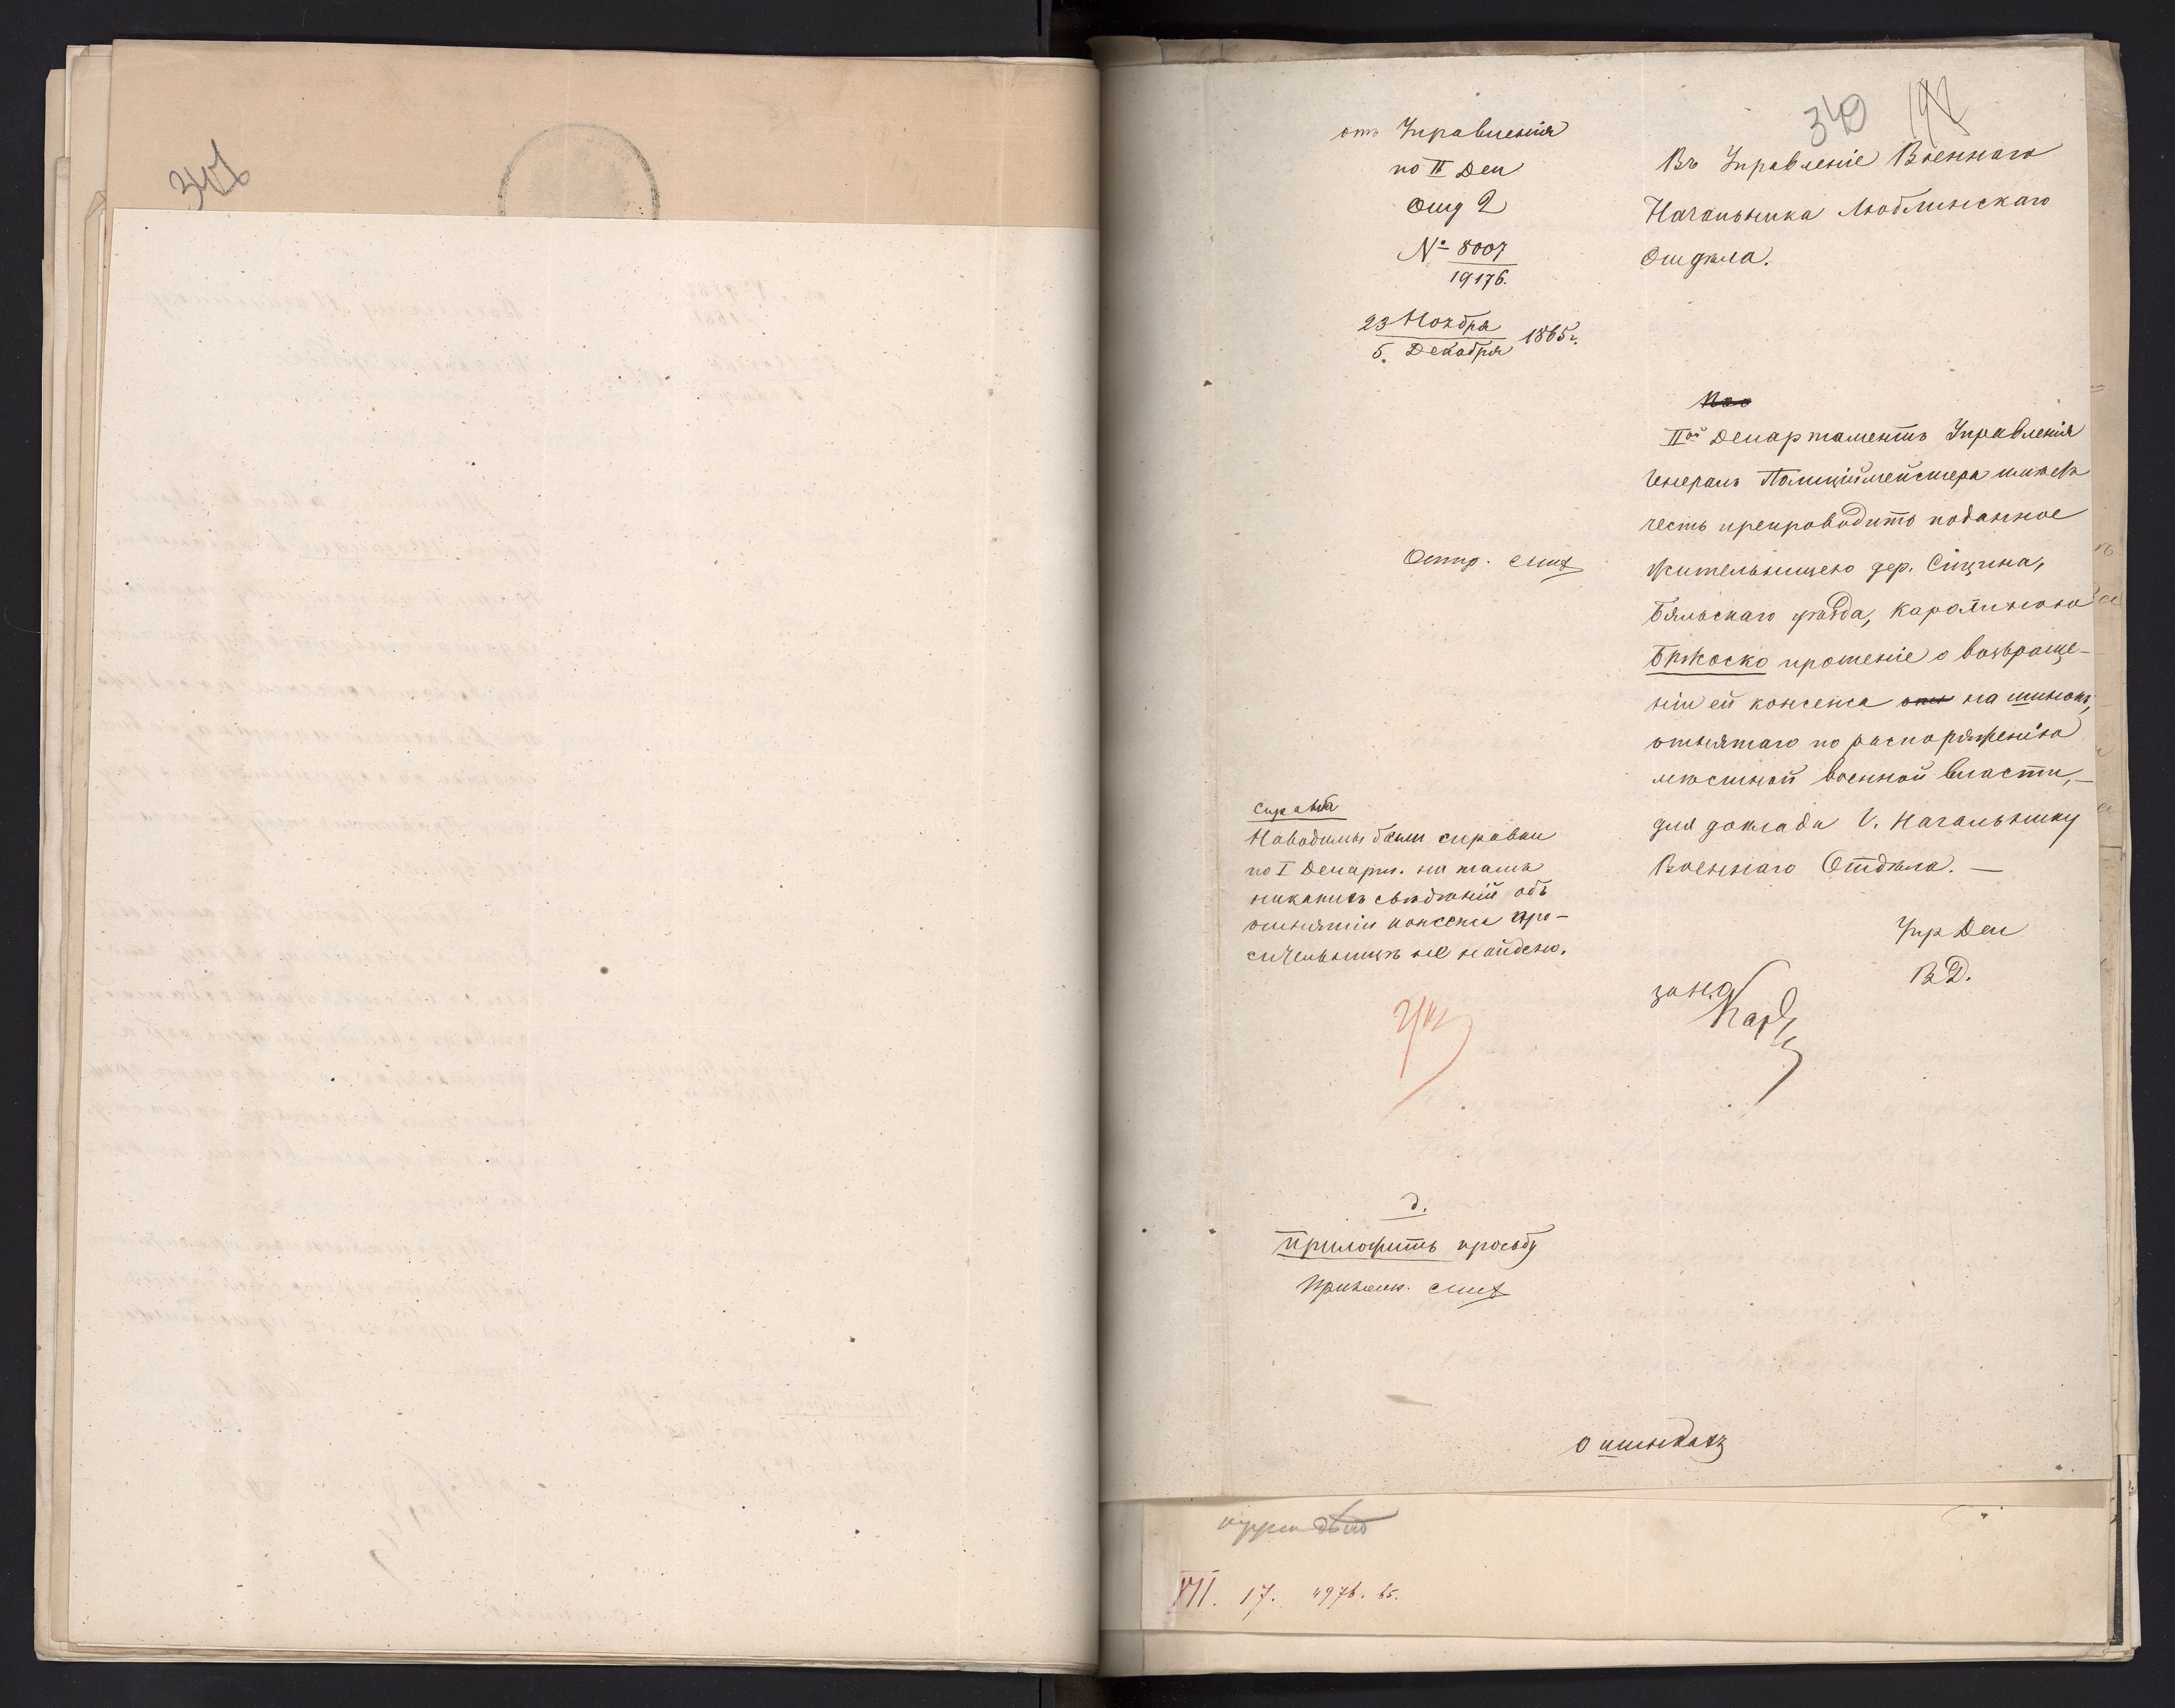 301
340
от Управленія
по II Деп
Отд 2
№ 8007
19176.
23 Ноября
5. Декабря 1865 г.
Въ Управленіе Военнаго
Начальника Люблинскаго
Отдѣла.
IIой Департаментъ Управленія
Генералъ Полиціймейстера имѣетъ
честь препроводить поданное
жительницею дер. Сицина,
Бяльскаго уѣзда, Каролиною
Бржоско прошеніе о возвраще-
ніи ей консенса на шинокъ,
отнятаго по распоряженію
мѣстной военной власти,—
для доклада Г. Начальнику
Военнаго Отдѣла. —
Упр Деп
В Д.
Отпр.
Справка
Наводимы были справки
по I Департ. но тамъ
никакихъ свѣдѣній объ
отнятіи консенса про-
сительницѣ не найдено.
приложить просьбу
о шинкахъ
XVII. 17. 4976. 65.